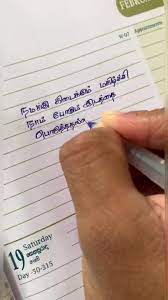 FEBRU
Appointments
நமக்கு கிடைக்கும் மகிழ்ச்சி
நாம் போகும் இடத்தை
பொறுத்ததல்ல
19 Saturday
சனி
Day-50-315